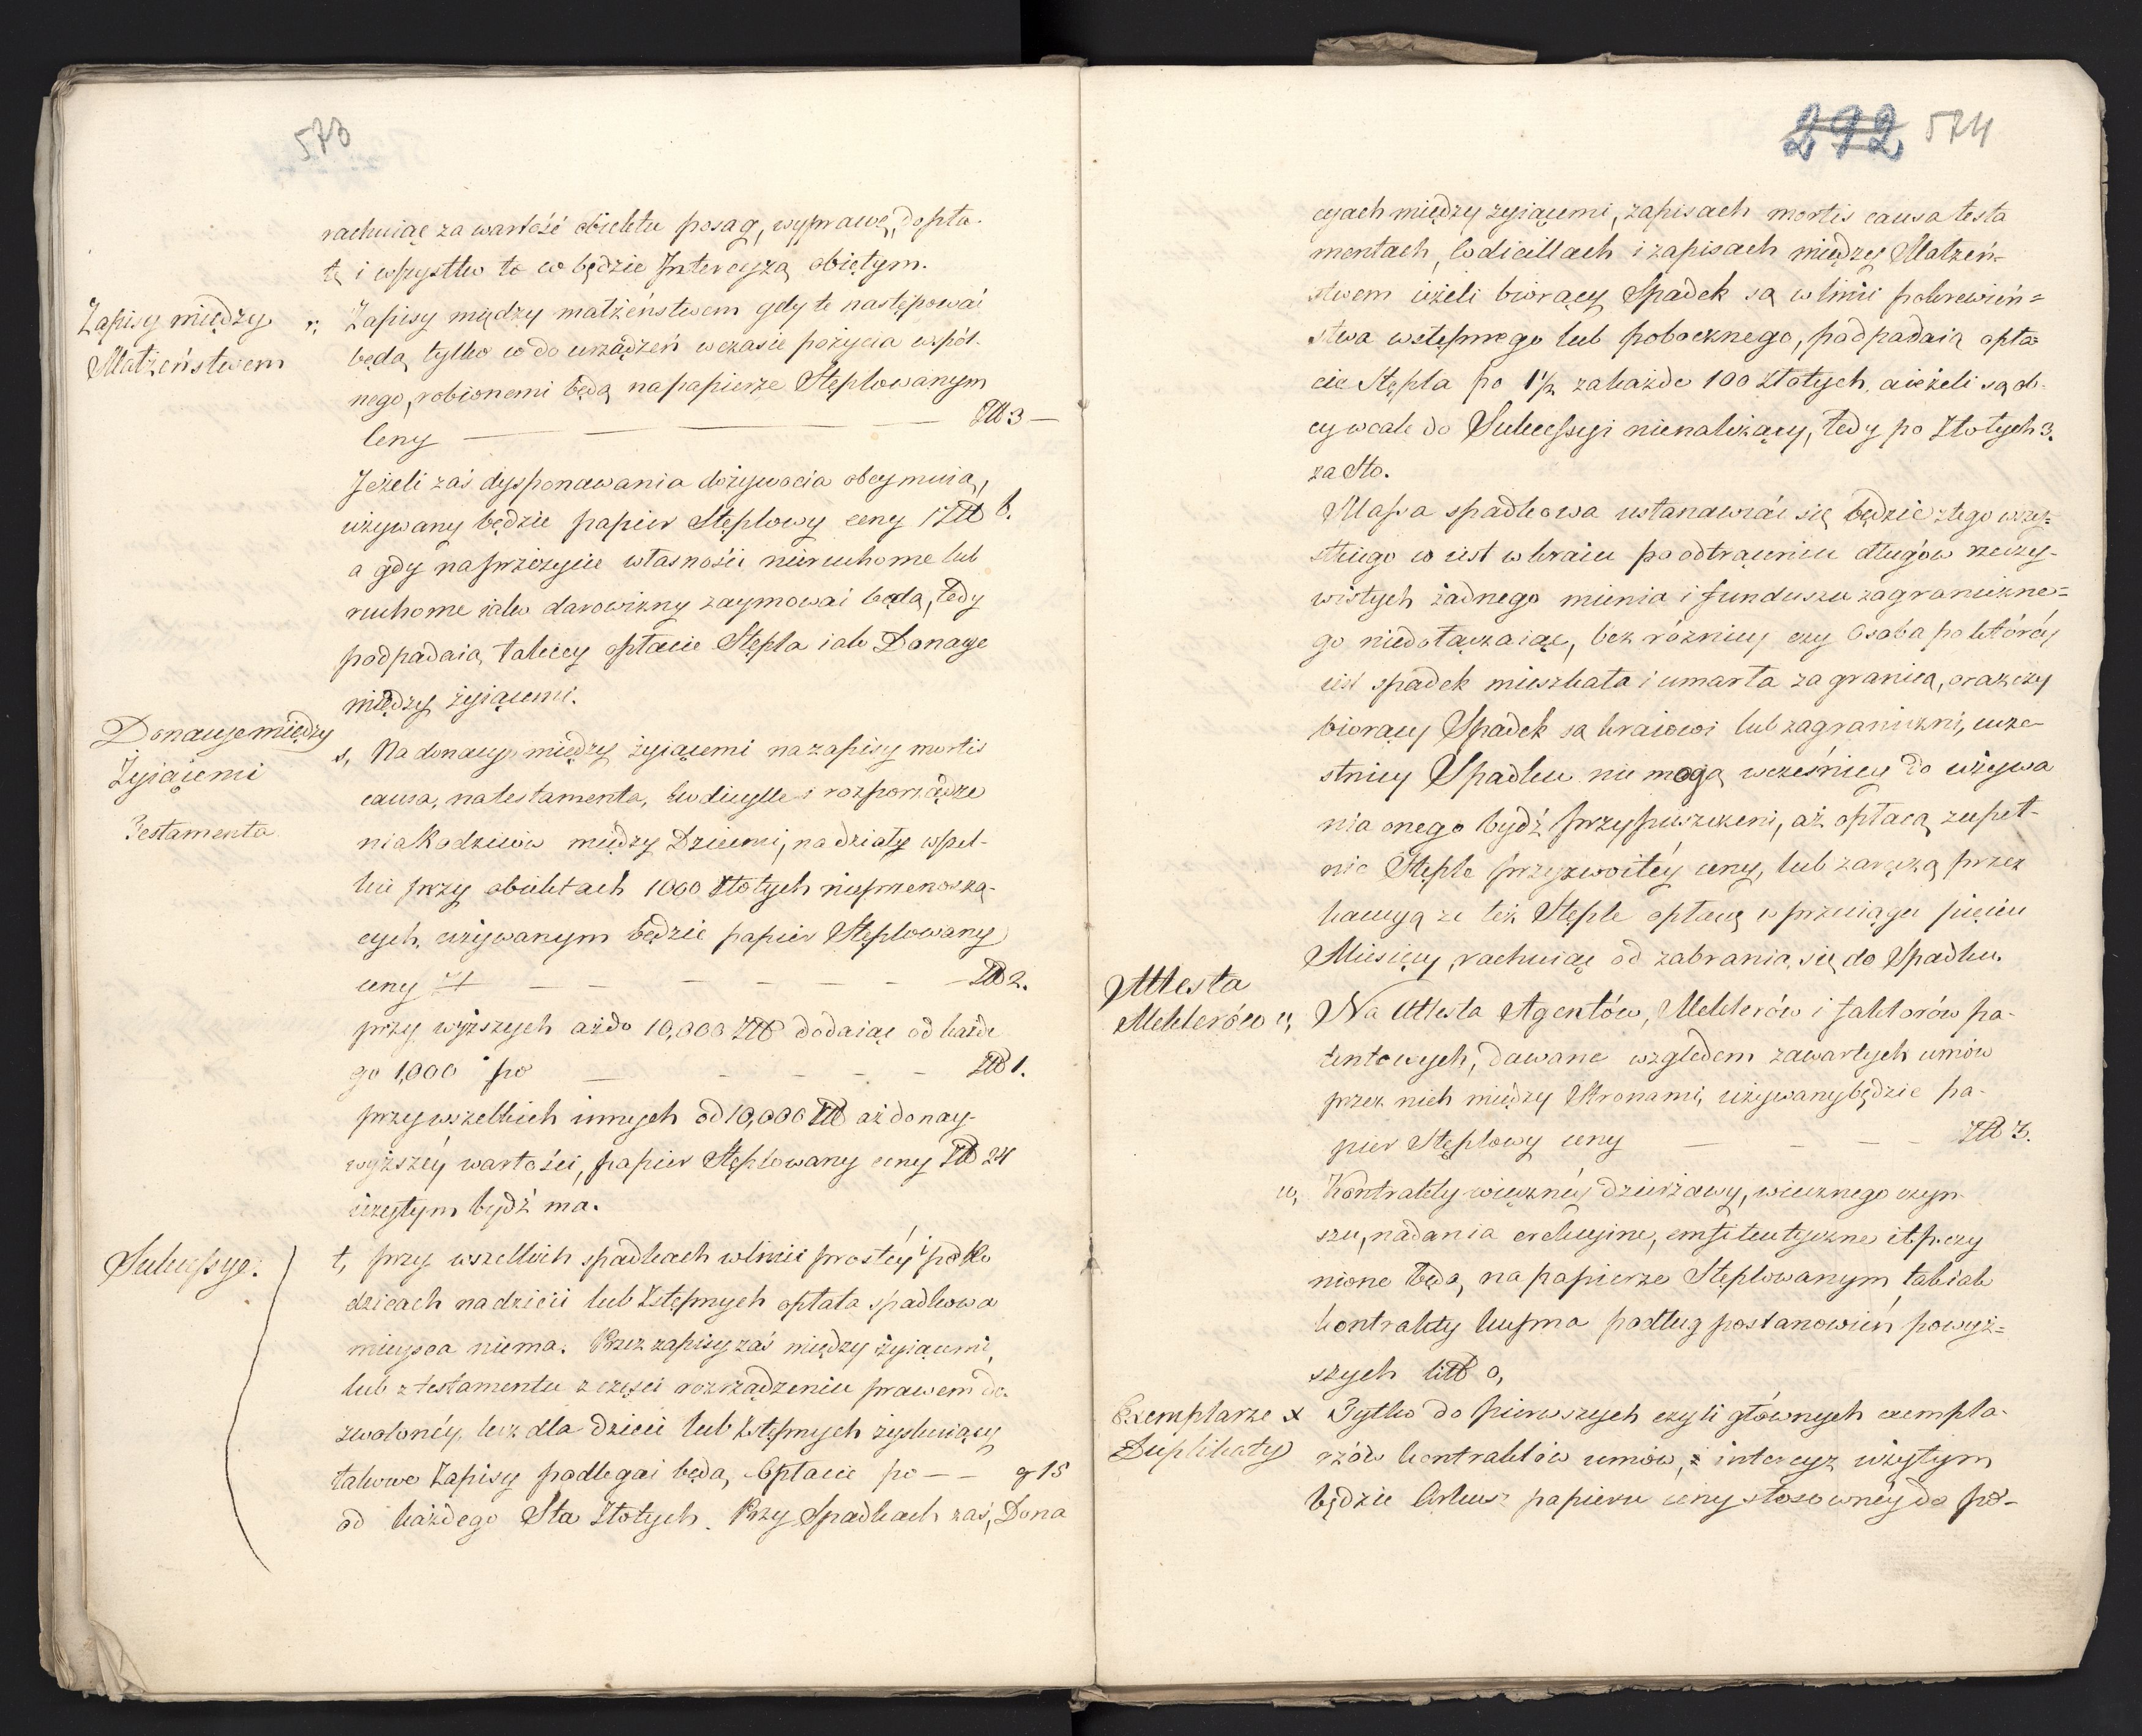 573
rachuiąc za wartość obiektu posag, wyprawę, dopła-
tę i wszystko to co będzie Intercyzą obiętym.
Zapisy między
Małżeństwem
r, Zapisy między małżeństwem gdy te następować
będą tylko co do urządzeń w czasie pożycia wspól-
nego, robionemi będą na papierze Stęplowanym
Ceny — — — Złł 3 —
Jeżeli zaś dysponowania dożywocia obeymuią,
używany będzie papier Stęplowy ceny Złł 6.
a gdy na przeżycie własności nieruchome lub
ruchome iako darowizny zaymować będą, tedy
podpadaią takiey opłacie Stępla iak Donacye
między żyiącemi.
Donacye między
Żyiącemi
Testamenta
s, Na donacye między żyiącemi na zapisy mortis
causa, na testamenta, kodicylle i rozporządze
nia Rodziców między Dziećmi, na działy wszel-
kie przy obiektach 1000 Złotych nieprzenoszą-
cych, używanym będzie papier Stęplowany
ceny — — — — — — Złł 2.
przy wyższych aż do 10,000 Złł dodaiąc od każde
go 1,000 po — — — — — Złł 1.
przy wszelkich innych od 10,000 Złł aż do nay-
wyższéy wartości, papier Stęplowany ceny Złł 24
użytym bydź ma.
Sukcessye.
t, przy wszelkich spadkach w linii prostéy i po Ro
dzicach na dzieci lub Zstępnych opłata spadkowa
mieysca niema. Przez zapisy zaś między żyiącemi,
lub z testamentu z części rozrządzeniu prawem do-
zwolonéy, lecz dla dzieci lub Zstępnych zyskuiący
takowe Zapisy podlegać będą, Opłacie po — — g 15
od każdego Sta Złotych. Przy Spadkach zaś, Dona
292 574
cyach między żyiącemi, zapisach mortis causa testa
mentach, Codicillach i zapisach między Małżeń-
stwem ieżeli biorący Spadek są w linii pokrewień=
stwa wstępnego lub pobocznego, podpadaią opła-
cie Stępla po 1½ za każde 100 Złotych, a ieżeli są ob-
cy wcale do Sukcessyi nienależący, tedy po Złotych 3.
za Sto.
Massa spadkowa ustanawiać się będzie z tego wszy-
stkiego co iest w kraiu po odtrąceniu długów rzeczy-
wistych żadnego mienia i funduszu zagraniczne=
go niedołączaiąc, bez różnicy czy Osoba po któréy
iest spadek mieszkała i umarła za granicą, oraz czy
biorący Spadek są kraiowi lub zagraniczni, ucze-
stnicy Spadku nie mogą wcześniey do używa
nia onego bydź przypuszczeni, aż opłacą zupeł-
nie Stęple przyzwoitéy ceny, lub zaręczą przez
kaucyą że też Stęple opłacą w przeciągu pięciu
Miesięcy rachuiąc od zabrania się do Spadku.
Attesta
Meklerów u, Na Attesta Agentów, Meklerów i faktorów pa-
tentowych, dawane względem zawartych umów
przez nich między Stronami, używany będzie pa-
pier Stęplowy ceny — — — — Złł 3.
w, Kontrakty wiecznéy dzierżawy, wiecznego czyn-
szu, nadania erekcyine, emfiteutyczne itp. czy
nione będą, na papierze Stęplowanym tak iak
kontrakty kupna podług postanowień powyż=
szych litt o,
Exemplarze
Duplikaty
x Tylko do pierwszych czyli głównych exempla-
rzów kontraktów umów, i intercyz użytym
będzie Arkusz papieru ceny stosownéy do po-